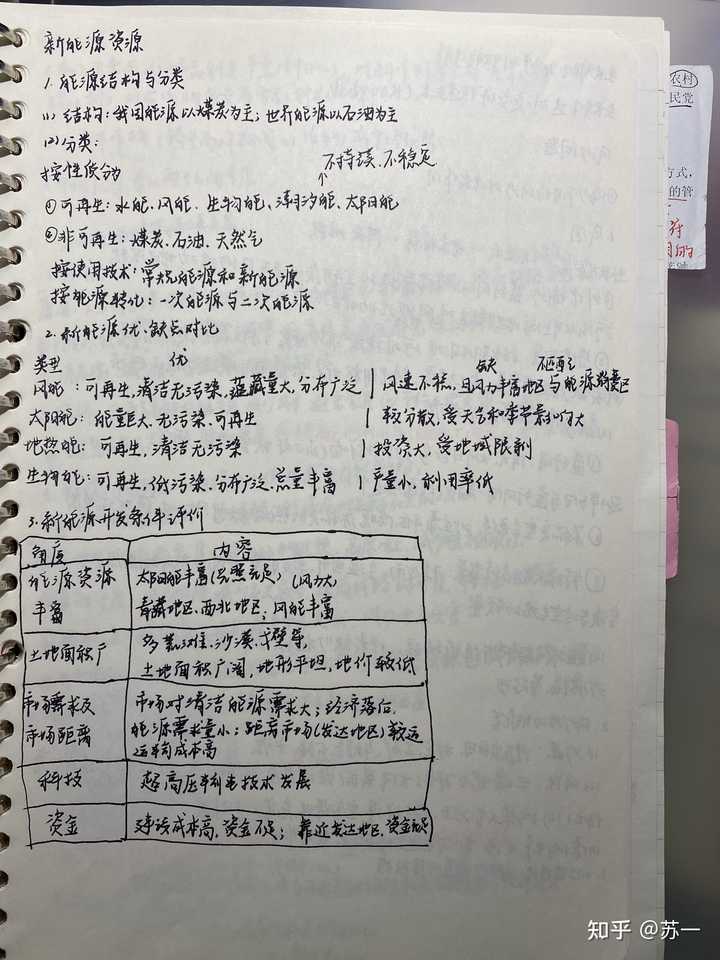 新能源资源
1. 能源结构与分类
(1) 结构：我国能源以煤炭为主；世界能源以石油为主
(2) 分类：
按性质分为
↑不持续、不稳定
①可再生：水能、风能、生物能、潮汐能、太阳能
②非可再生：煤炭、石油、天然气
按使用技术：常规能源和新能源
按能源转化：一次能源与二次能源
2. 新能源优、缺点对比
类型 优 缺 不匹配
风能：可再生，清洁无污染，蕴藏量大，分布广泛 | 风速不稳，且风力丰富地区与能源消费区
太阳能：能量巨大、无污染、可再生 | 较分散，受天气和季节影响大
地热能：可再生，清洁无污染 | 投资大，受地域限制
生物能：可再生，低污染，分布广泛、总量丰富 | 产量小，利用率低
3. 新能源开发条件评价
角度 内容
能源资源 太阳能丰富(光照充足) (风力大)
丰富 青藏地区、西北地区；风能丰富
土地面积广 多荒滩、沙漠、戈壁等，
土地面积广阔，地形平坦，地价较低
市场需求及 市场对清洁能源需求大；经济落后，
市场距离 能源需求量小；距离市场(发达地区)较远
运输成本高
科技 超高压输电技术发展
资金 建设成本高，资金不足；靠近发达地区，资金充足
农村
民党
方式，
的管
知乎 @苏一